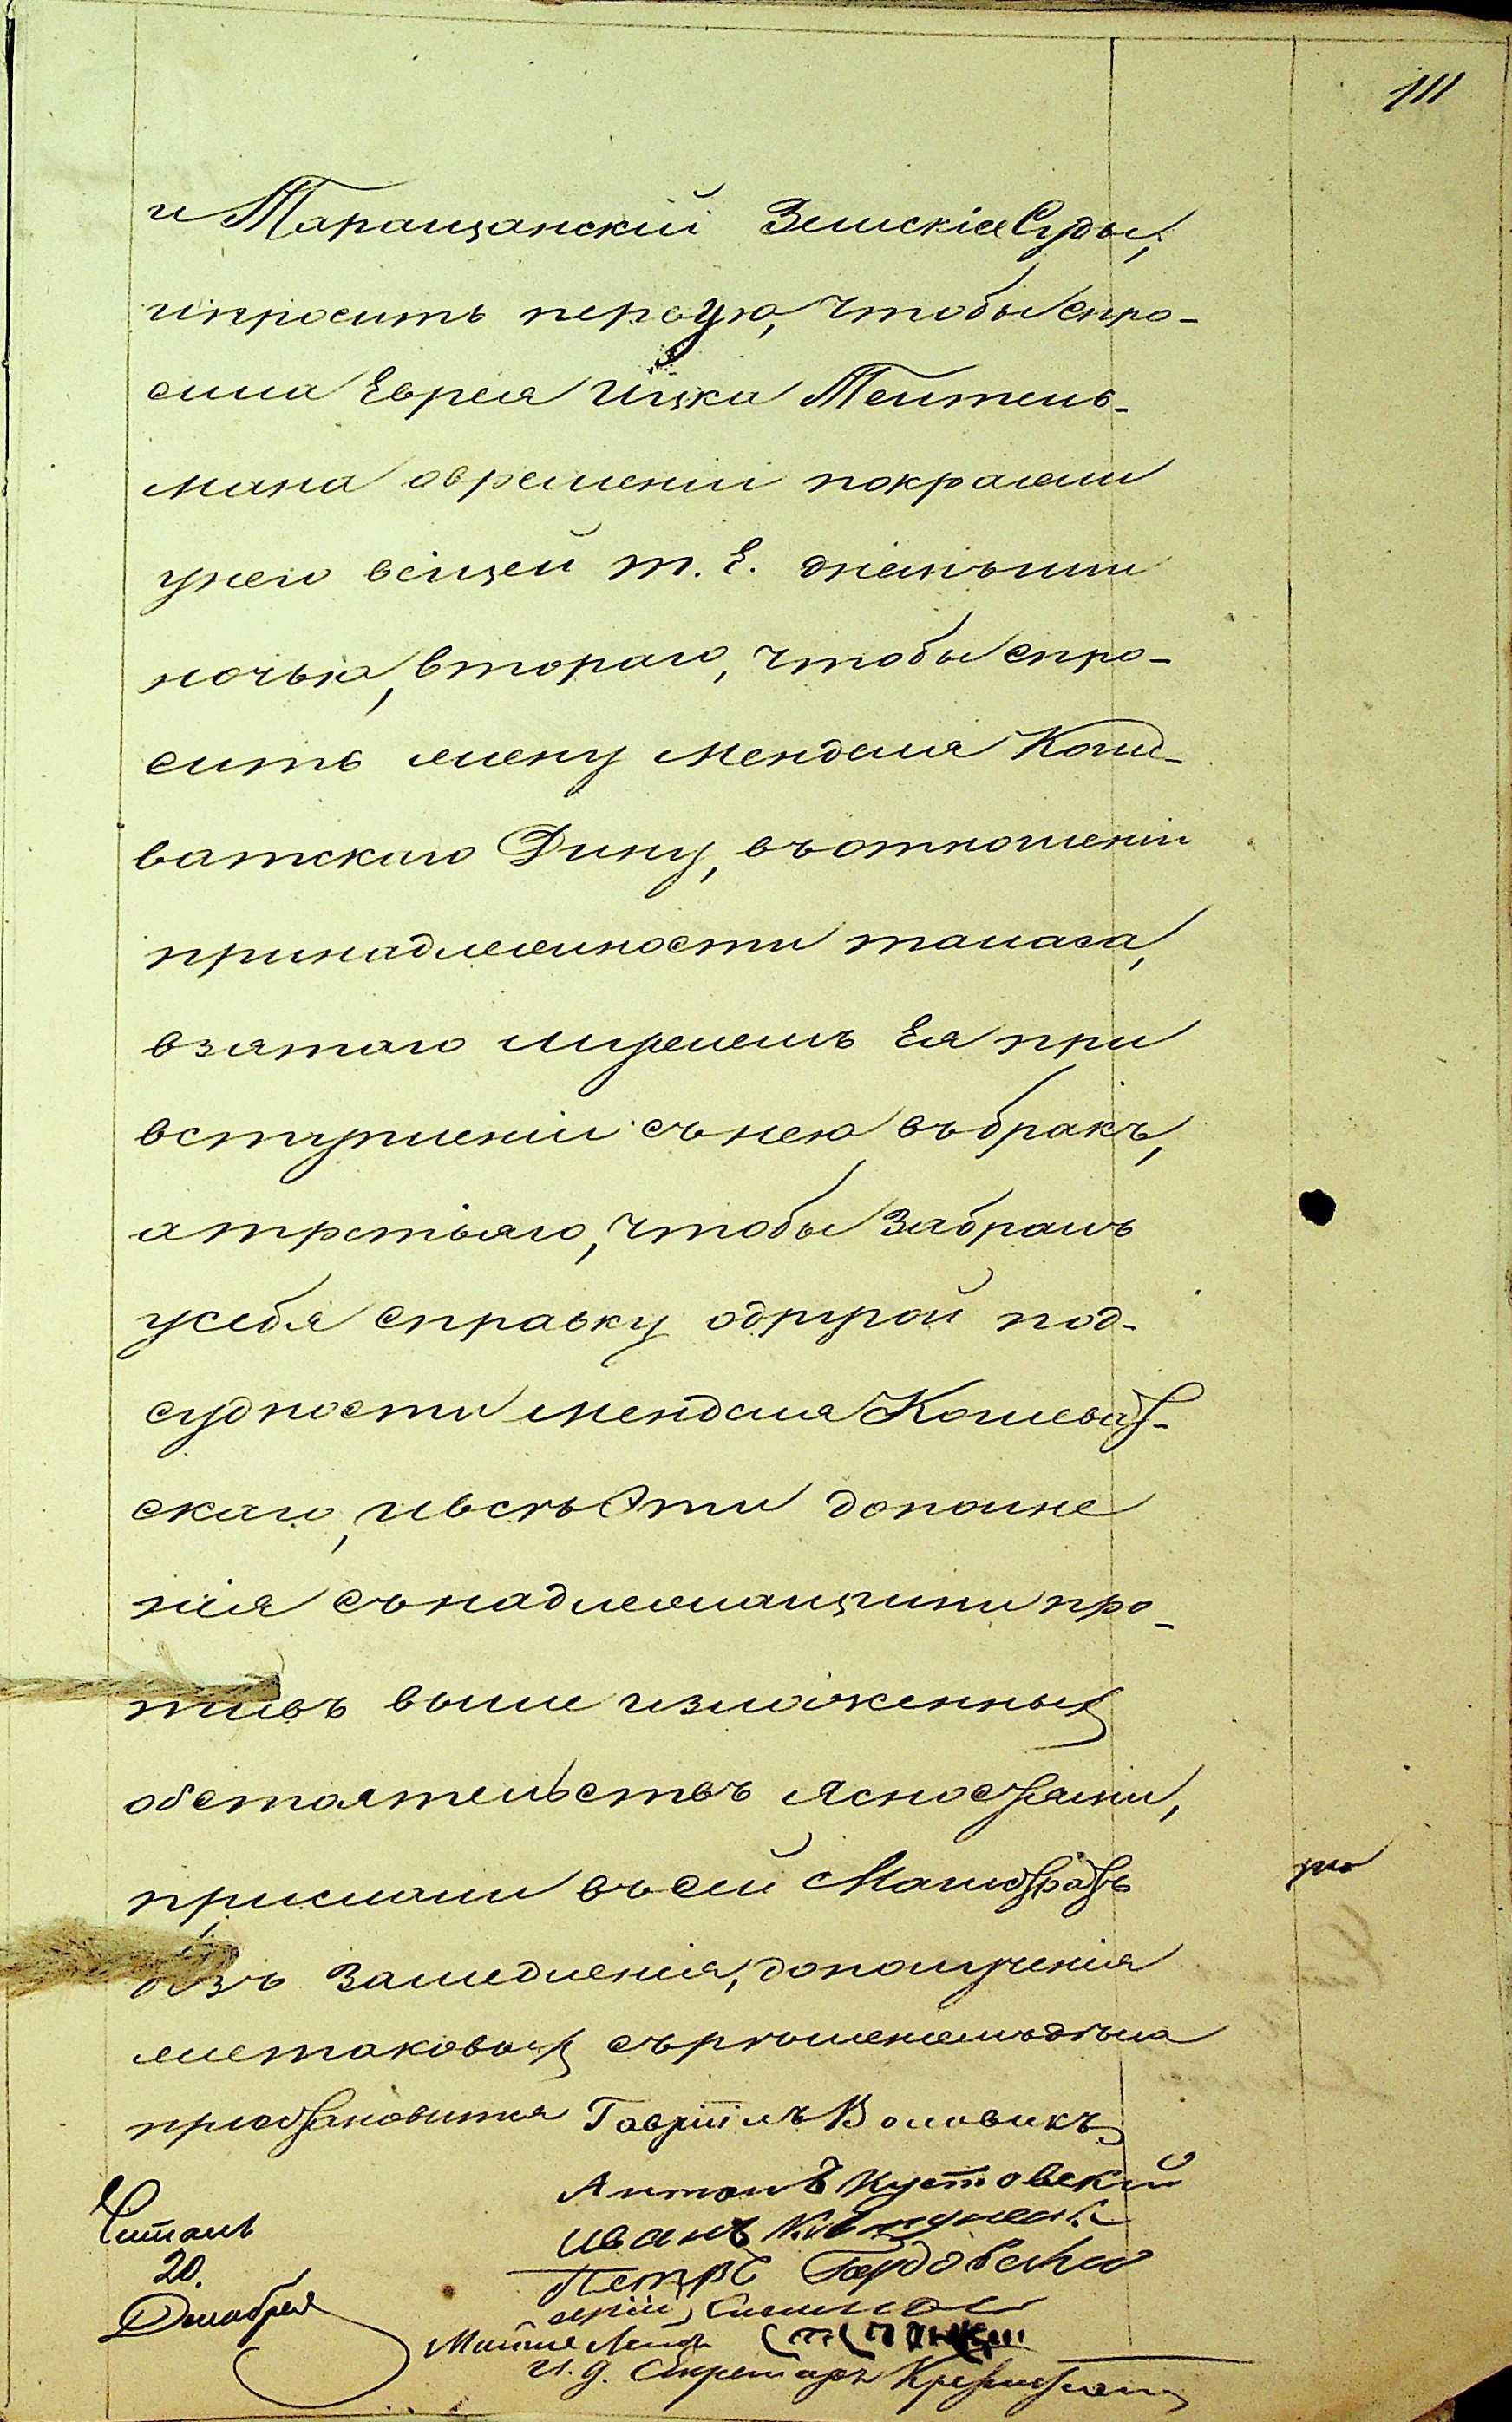 111
и Таращанскій Земскіе Суды,
и просить первую, чтобы спро-
сила Еврея Ицка Тейтель-
мана о времени покражи
у него вещей т. е. днемъ или
ночью, втораго, чтобы спро-
сить жену Менделя Коше-
ватскаго Дину, въ отношеніи
принадлежности таласа,
взятаго мужемъ Ея при
вступленіи съ нею въ бракъ,
а третьяго, чтобы забралъ
у себя справку о другой под-
судности Менделя Кошеват-
скаго, и всѣ Эти дополне
нія съ надлежащими про-
тивъ выше изложенныхъ
обстоятельствъ ясностями,
прислали въ сей Магистратъ
безъ замедленія, до полученія
же таковыхъ съ рѣшеніемъ дѣла
пріостановится Гавріилъ Воловикъ
Антонъ Кустовскій
Иванъ
Петръ
И. д. Секретаря
Читалъ
20.
Декабря